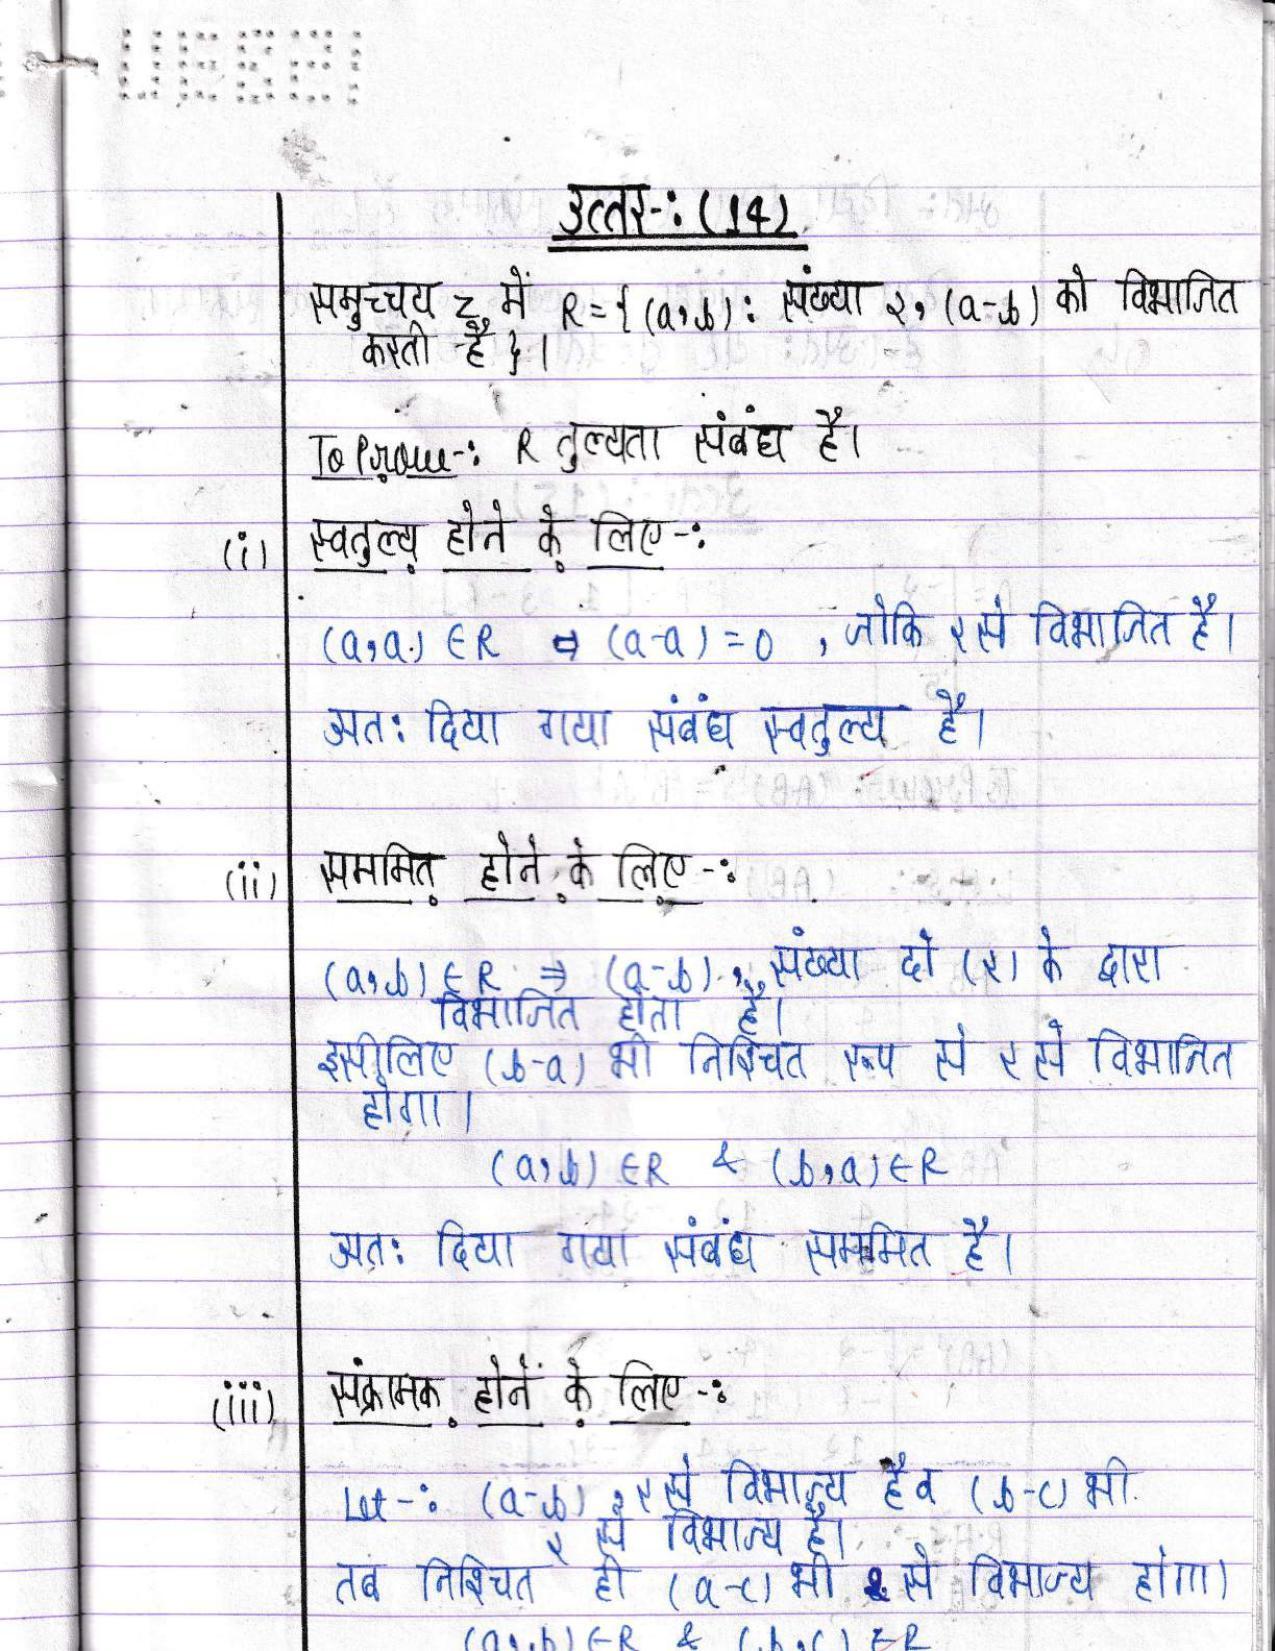 उत्तर-: (14)
समुच्चय Z में R = { (a,b) : संख्या २, (a-b) को विभाजित
करती है }।
To Prove-: R तुल्यता संबंध है।
(i) स्वतुल्य होने के लिए-:
(a,a) ∈ R ⇒ (a-a) = 0 , जोकि २ से विभाजित है।
अतः दिया गया संबंध स्वतुल्य है।
(ii) सममित होने के लिए-:
(a,b) ∈ R ⇒ (a-b), संख्या दो (२) के द्वारा
विभाजित होता है।
इसीलिए (b-a) भी निश्चित रूप से २ से विभाजित
होगा।
(a,b) ∈ R & (b,a) ∈ R
अतः दिया गया संबंध सममित है।
(iii) संक्रामक होनें के लिए-:
Let-: (a-b), २ से विभाज्य है व (b-c) भी
२ से विभाज्य है।
तब निश्चित ही (a-c) भी २ से विभाज्य होगा।
(a,b) ∈ R & (b,c) ∈ R